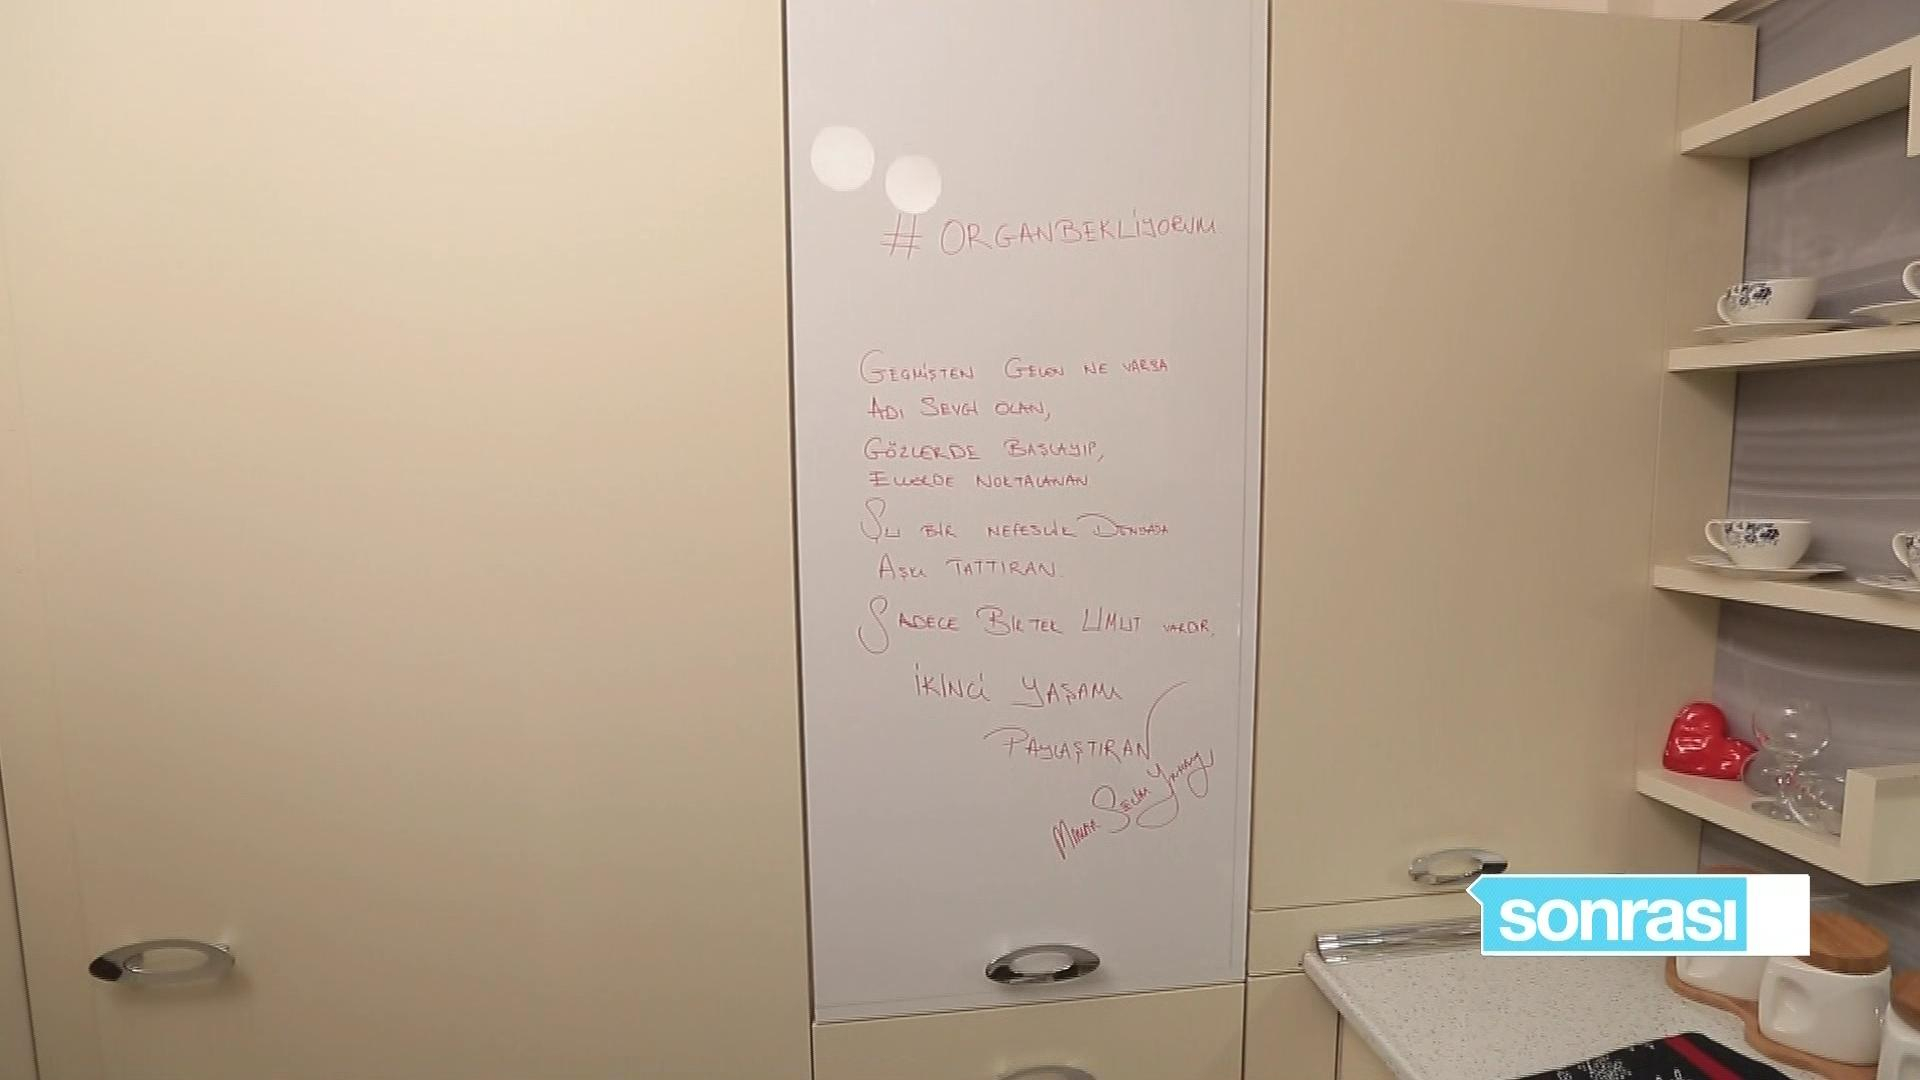 # ORGANBEKLİYORUM
GEÇMİŞTEN GELEN NE VARSA
ADI SEVGİ OLAN,
GÖZLERDE BAŞLAYIP,
ELLERDE NOKTALANAN
ŞU BİR NEFESLİK DÜNYADA
AŞKI TATTIRAN.
SADECE BİR TEK UMUT VARDIR,
İKİNCİ YAŞAMI
PAYLAŞTIRAN
MİMAR SELİM
sonrası